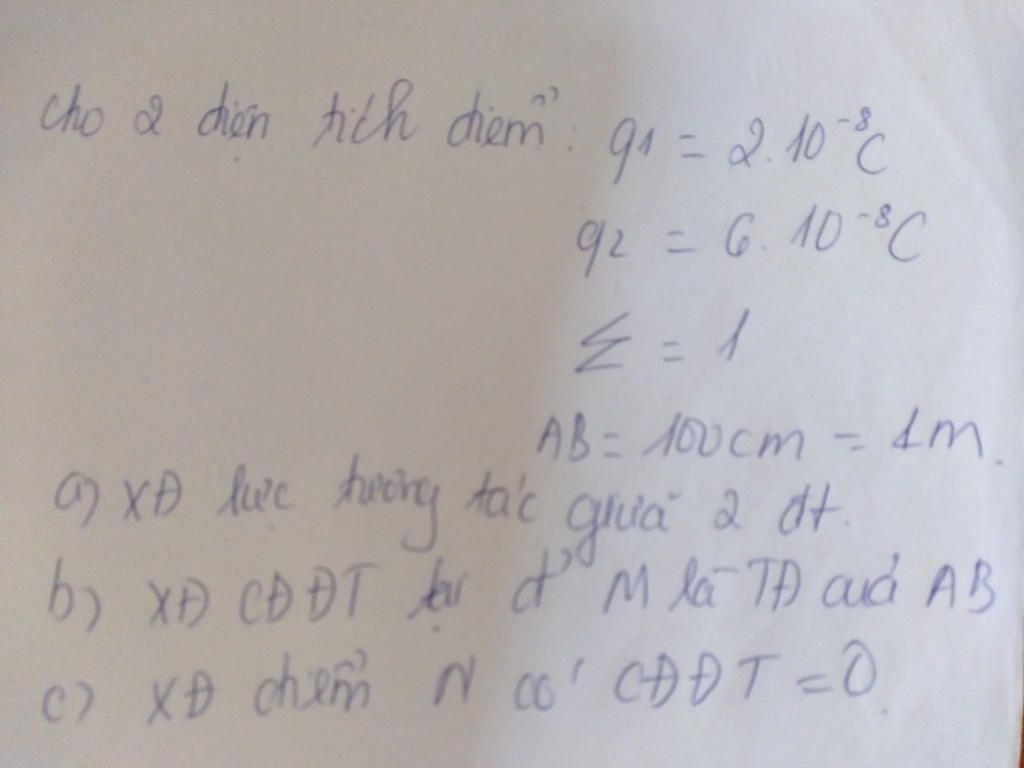 Cho 2 điện tích điểm: q1 = 2.10⁻⁸C
q2 = 6.10⁻⁸C
Σ = 1
AB = 100cm = 1m.
a) XĐ lực tương tác giữa 2 đt.
b) XĐ CĐĐT tại đ' M là TĐ của AB
c) XĐ điểm N có CĐĐT = 0.